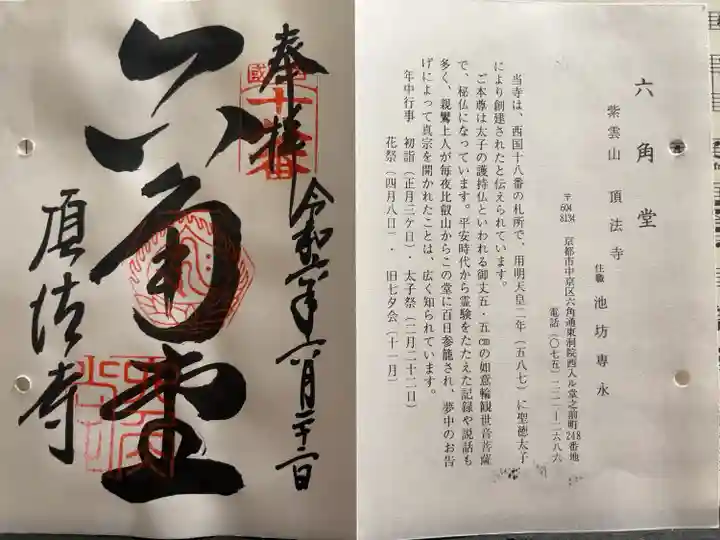 奉拝
西国
十八番
令和六年六月二十二日
六角堂
頂法寺
六角堂
紫雲山 頂法寺
住職 池坊専永
〒604 8134 京都市中京区六角通東洞院西入ル堂之前町248番地
電話(〇七五)二二一―二六八六
当寺は、西国十八番の札所で、用明天皇二年(五八七)に聖徳太子
により創建されたと伝えられています。
ご本尊は太子の護持仏といわれる御丈五・五㎝の如意輪観世音菩薩
で、秘仏になっています。平安時代から霊験をたたえた記録や説話も
多く、親鸞上人が毎夜比叡山からこの堂に百日参籠され、夢中のお告
げによって真宗を開かれたことは、広く知られています。
年中行事 初詣(正月三ケ日)・太子祭(二月二十二日)
花祭(四月八日)・旧七夕会(十一月)